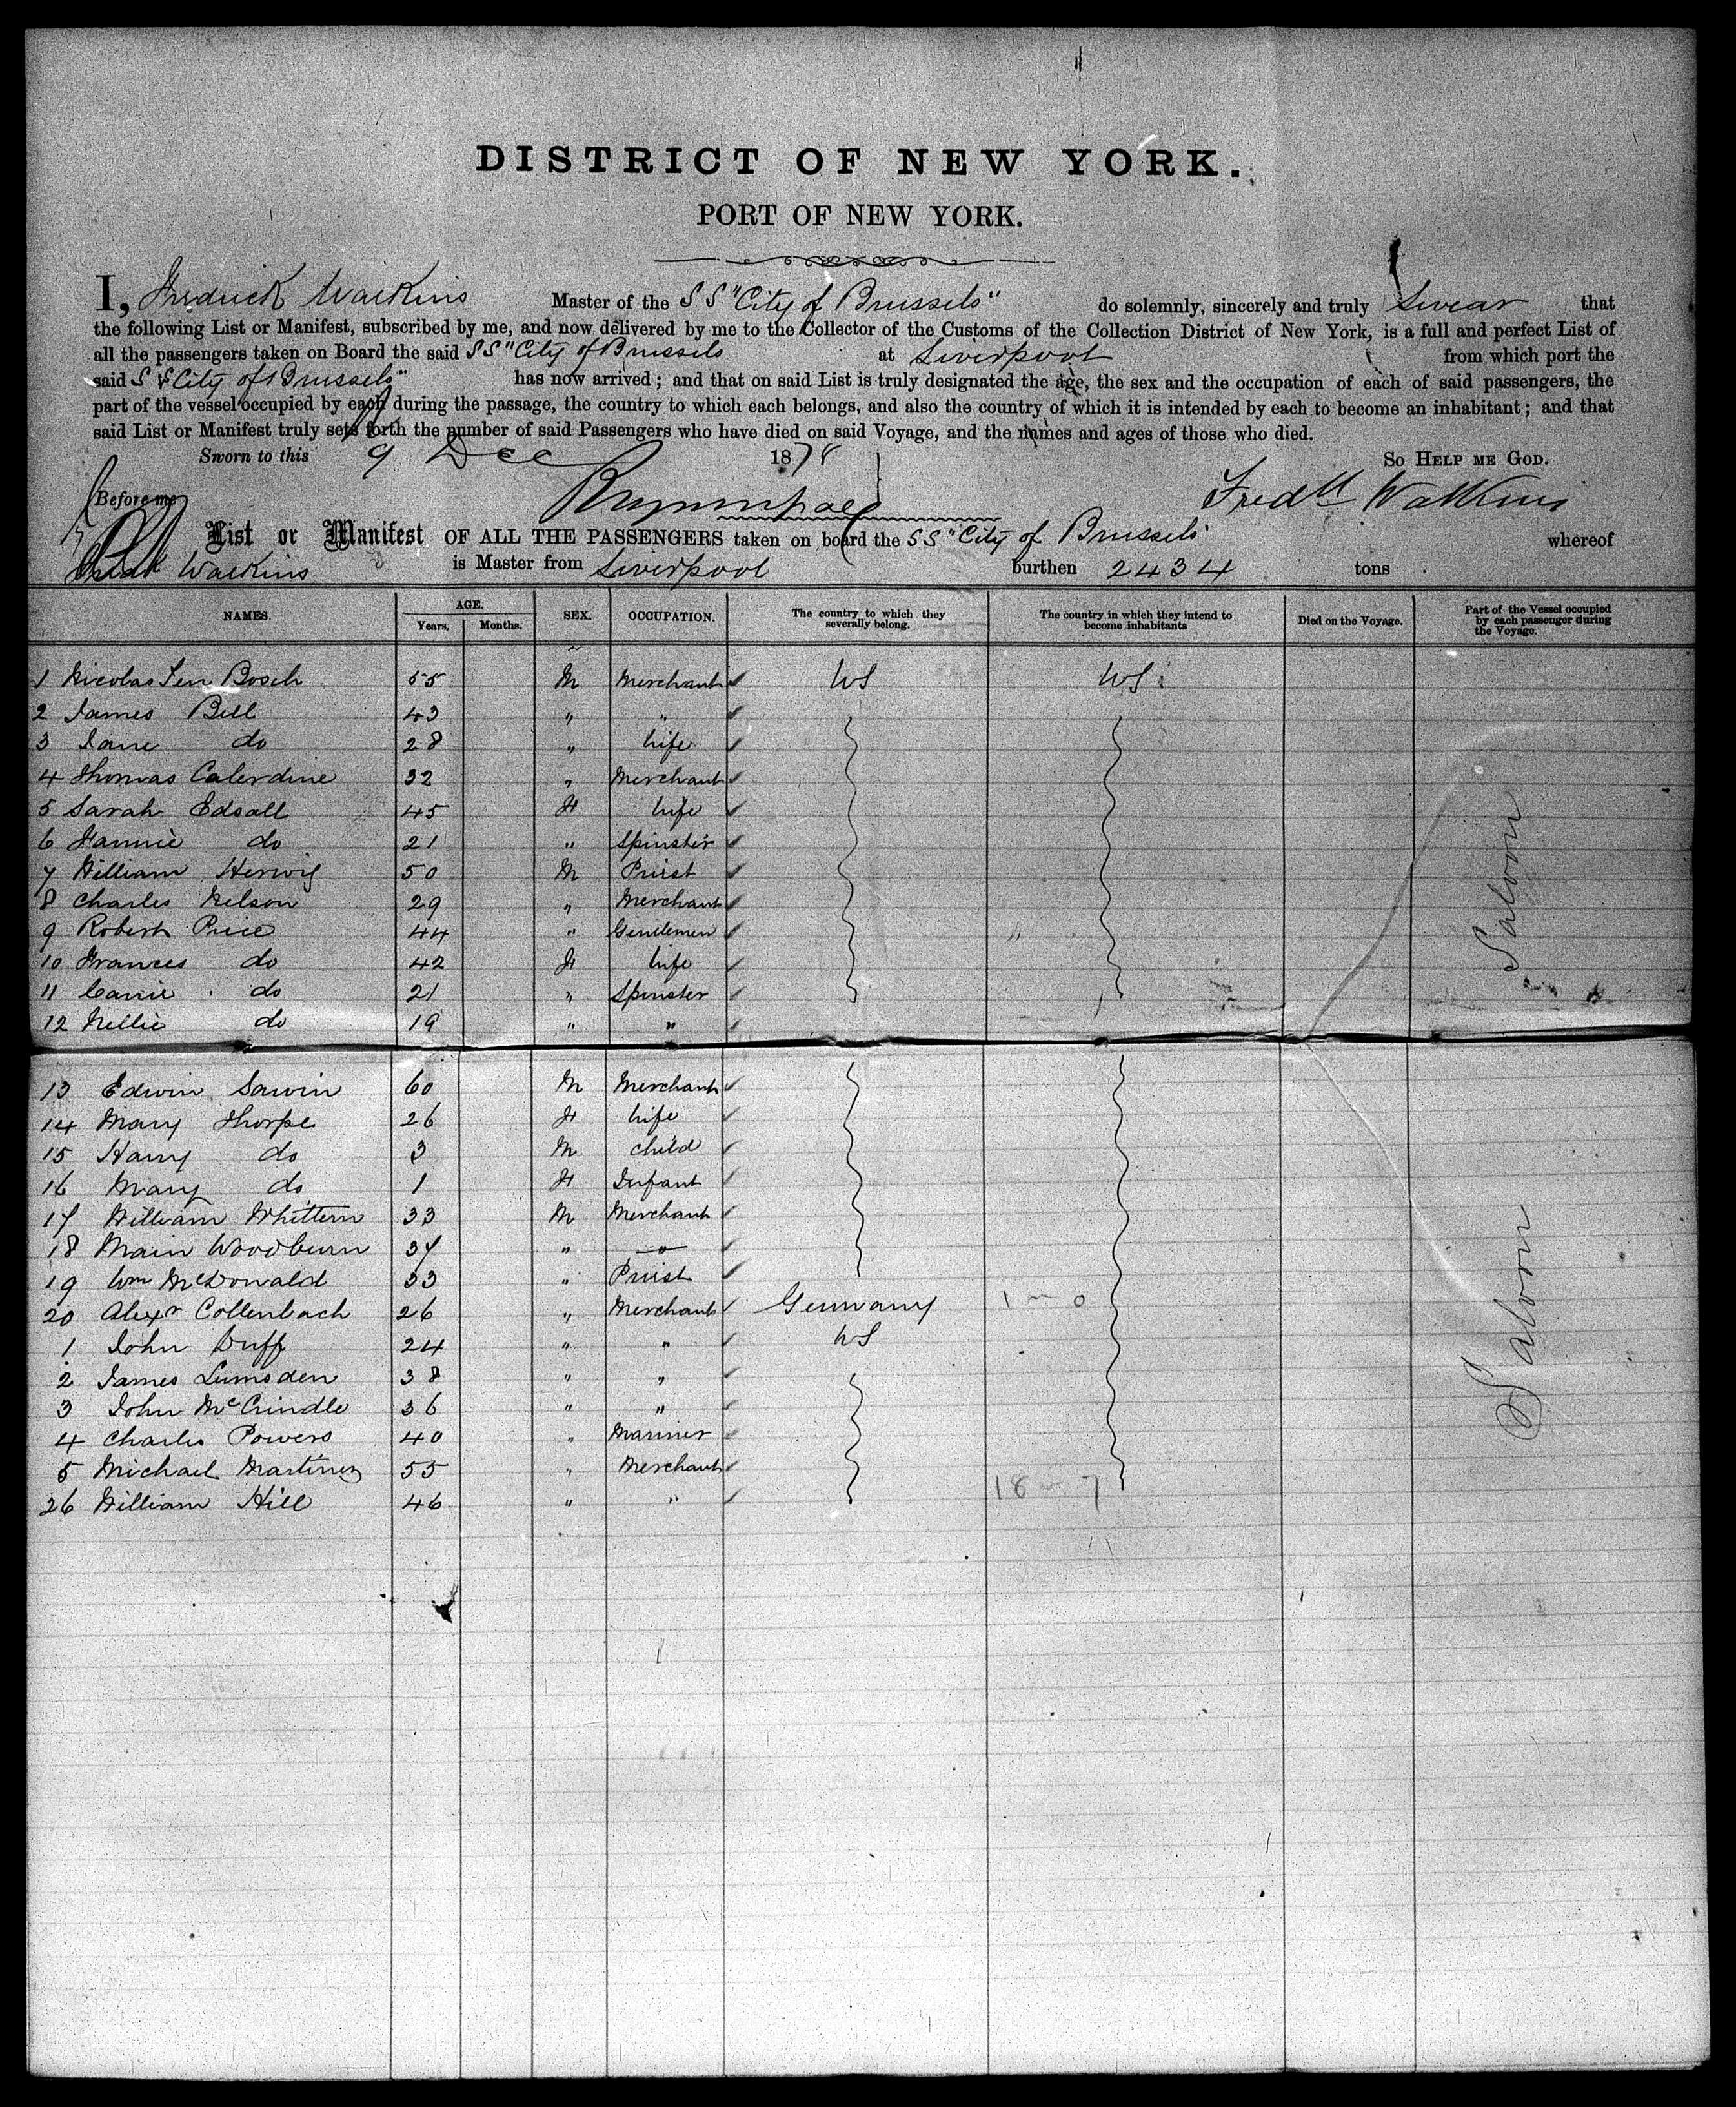 DISTRICT OF NEW YORK.
PORT OF NEW YORK.
I, Fredrick Watkins Master of the SS "City of Brussels" do solemnly, sincerely and truly swear that
the following List or Manifest, subscribed by me, and now delivered by me to the Collector of the Customs of the Collection District of New York, is a full and perfect List of
all the passengers taken on Board the said SS "City of Brussels at Liverpool from which port the
said SS City of Brussels" has now arrived; and that on said List is truly designated the age, the sex and the occupation of each of said passengers, the
part of the vessel occupied by each during the passage, the country to which each belongs, and also the country of which it is intended by each to become an inhabitant; and that
said List or Manifest truly sets forth the number of said Passengers who have died on said Voyage, and the names and ages of those who died.
Sworn to this 9 Dec 1878 So Help me God.
Before me Fredk Watkins
List or Manifest OF ALL THE PASSENGERS taken on board the SS "City of Brussels" whereof
Fredk Watkins is Master from Liverpool burthen 2434 tons
NAMES. AGE. Years. Months. SEX. OCCUPATION. The country to which they severally belong. The country in which they intend to become inhabitants Died on the Voyage. Part of the Vessel occupied by each passenger during the Voyage.
1 Nicolas Ten Bosch 55 M Merchant US US
2 James Bell 43 " "
3 Jane do 28 " Wife
4 Thomas Calerdine 32 " Merchant
5 Sarah Edsall 45 F Wife
6 Fannie do 21 " Spinster
7 William Herwig 50 M Priest
8 Charles Nelson 29 " Merchant
9 Robert Price 44 " Gentlemen
10 Frances do 42 F Wife
11 Carrie do 21 " Spinster
12 Nellie do 19 " "
Saloon
13 Edwin Sawin 60 M Merchant
14 Mary Thorpe 26 F Wife
15 Harry do 3 M Child
16 Mary do 1 F Infant
17 William Whittern 33 M Merchant
18 Main Woodburn 37 " "
19 Wm McDonald 33 " Priest
20 Alexr Collenbach 26 " Merchant Germany 1 - 0
1 John Duff 24 " " US
2 James Lumsden 38 " "
3 John McCrindle 36 " "
4 Charles Powers 40 " Mariner
5 Michael Martinez 55 " Merchant
26 William Hill 46 " " 18 - 7
Saloon